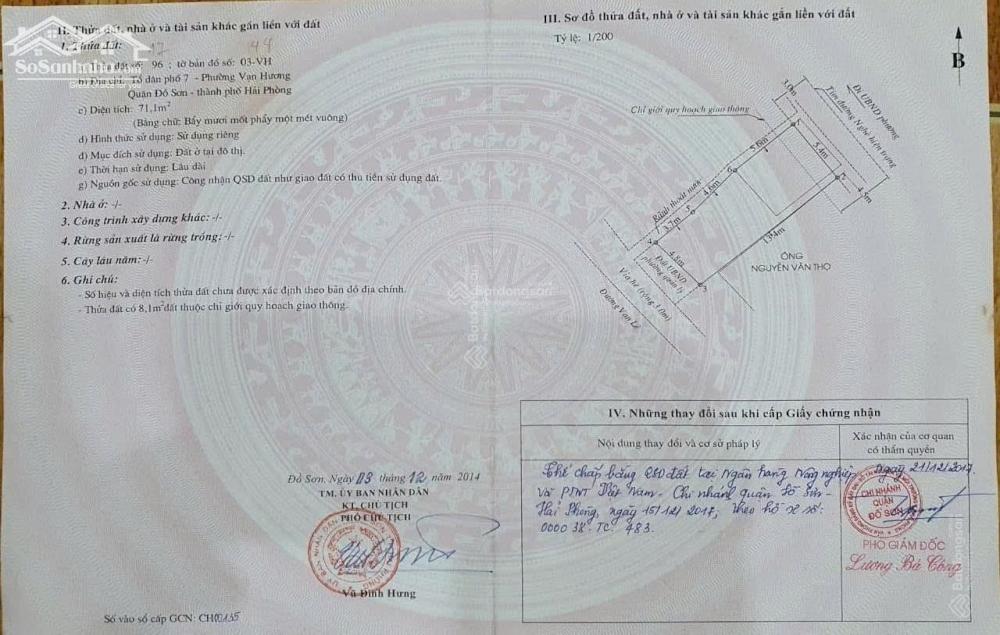 II. Thửa đất, nhà ở và tài sản khác gắn liền với đất
1. Thửa đất:
17 44
SoSanhnha.com
đất số: 96 ; tờ bản đồ số: 03-VH
b) Địa chỉ: Tổ dân phố 7 - Phường Vạn Hương
Quận Đồ Sơn - thành phố Hải Phòng
c) Diện tích: 71,1m²
(Bằng chữ: Bẩy mươi mốt phẩy một mét vuông)
d) Hình thức sử dụng: Sử dụng riêng
đ) Mục đích sử dụng: Đất ở tại đô thị.
e) Thời hạn sử dụng: Lâu dài
g) Nguồn gốc sử dụng: Công nhận QSD đất như giao đất có thu tiền sử dụng đất.
2. Nhà ở: -/-
3. Công trình xây dựng khác: -/-
4. Rừng sản xuất là rừng trồng: -/-
5. Cây lâu năm: -/-
6. Ghi chú:
- Số hiệu và diện tích thửa đất chưa được xác định theo bản đồ địa chính.
- Thửa đất có 8,1m² đất thuộc chỉ giới quy hoạch giao thông.
Đồ Sơn, Ngày 03 tháng 12 năm 2014
TM. ỦY BAN NHÂN DÂN
KT. CHỦ TỊCH
PHÓ CHỦ TỊCH
Vũ Đình Hưng
Số vào sổ cấp GCN: CH00135
III. Sơ đồ thửa đất, nhà ở và tài sản khác gắn liền với đất
Tỷ lệ: 1/200
B
Đi UBND phường
Tim đường Nghè hiện trạng
3.0m
Chỉ giới quy hoạch giao thông
1
5.6m
5.4m
2
4.5m
6
4.6m
Rãnh thoát nước
5
3.7m
4
4.8m
3
13.4m
Đất UBND
phường quản lý
Vỉa hè (rộng 1.0m)
Đường Vạn Lê
ÔNG
NGUYỄN VĂN THỌ
Batdongsan
IV. Những thay đổi sau khi cấp Giấy chứng nhận
Nội dung thay đổi và cơ sở pháp lý
Xác nhận của cơ quan
có thẩm quyền
Thế chấp bằng QSD đất tại Ngân hàng Nông nghiệp
và PTNT Việt Nam - Chi nhánh quận Đồ Sơn -
Hải Phòng, ngày 15/12/2017, theo hồ sơ số:
000038. TC. 483.
Ngày 21/12/2017
CHI NHÁNH
QUẬN
ĐỒ SƠN
PHÓ GIÁM ĐỐC
Lương Bá Công